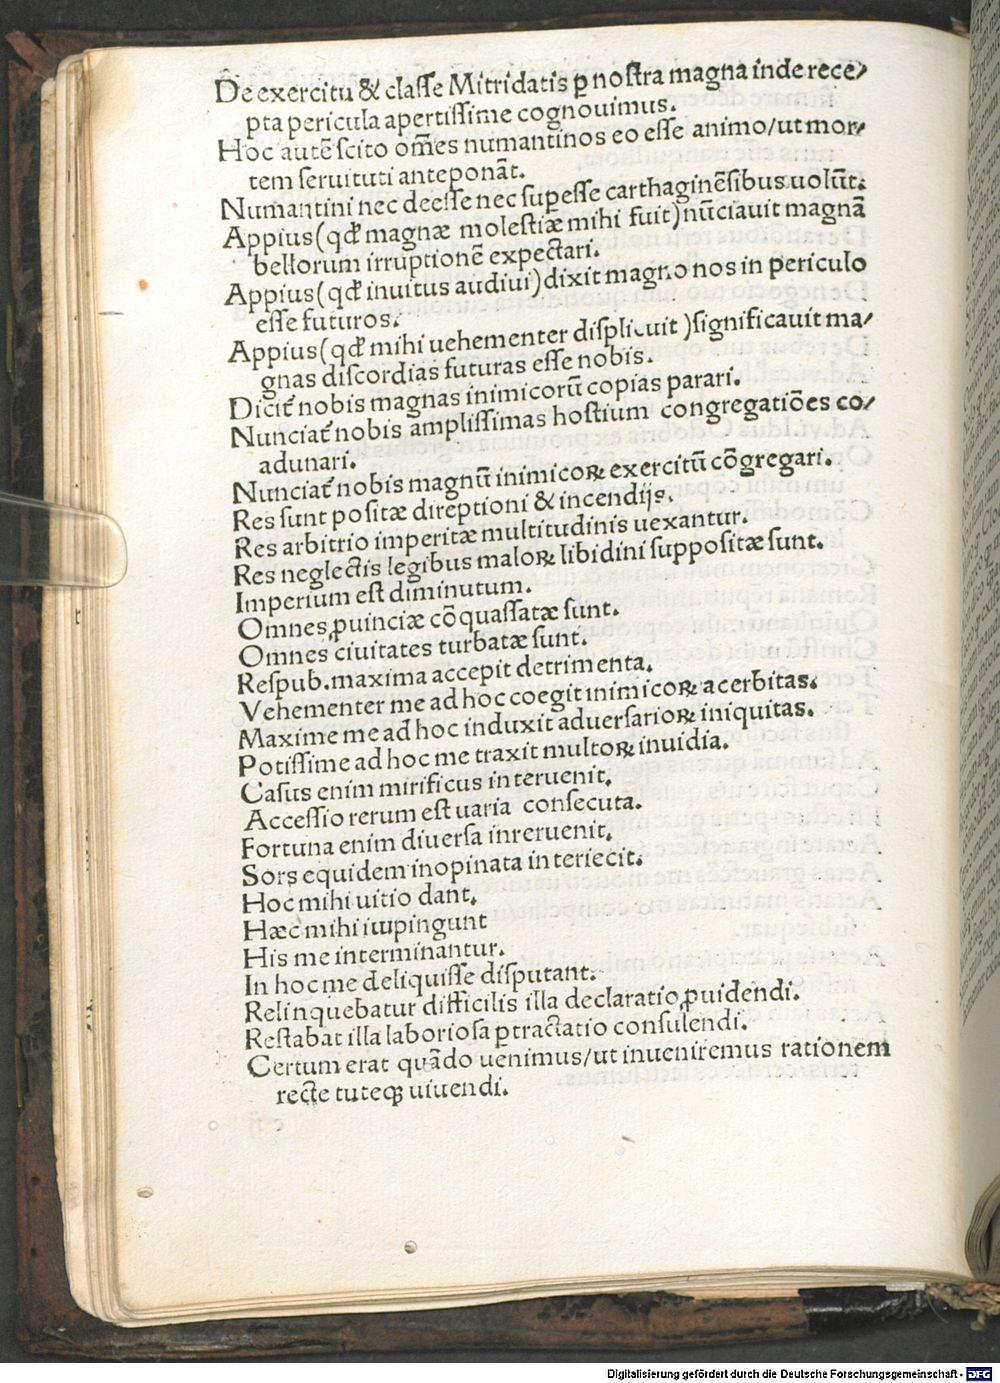 De exercitu & claſſe Mitridatis ꝑ noſtra magna inde rece/
pta pericula apertiſſime cognouimus.
Hoc autē ſcito om̄es numantinos eo eſſe animo/ut mor/
tem ſeruituti anteponāt.
Numantini nec deeſſe nec ſupeſſe carthaginēſibus uolūt.
Appius(qđ magnæ moleſtiæ mihi fuit)nūciauit magnā
bellorum irruptionē expectari.
Appius(qđ inuitus audiui)dixit magno nos in periculo
eſſe futuros.
Appius(qđ mihi uehementer diſplicuit)ſignificauit ma/
gnas diſcordias futuras eſſe nobis.
Dicit᷑ nobis magnas inimicorū copias parari.
Nunciat᷑ nobis ampliſſimas hoſtium congregatiōes co/
adunari.
Nunciat᷑ nobis magnū inimicoꝝ exercitū cōgregari.
Res ſunt poſitæ direptioni & incendijs.
Res arbitrio imperitæ multitudinis uexantur.
Res neglectis legibus maloꝝ libidini ſuppoſitæ ſunt.
Imperium eſt diminutum.
Omnes ꝓuinciæ cōquaſſatæ ſunt.
Omnes ciuitates turbatæ ſunt.
Reſpub. maxima accepit detrimenta.
Vehementer me ad hoc coegit inimicoꝝ acerbitas.
Maxime me ad hoc induxit aduerſarioꝝ iniquitas.
Potiſſime ad hoc me traxit multoꝝ inuidia.
Caſus enim mirificus interuenit.
Acceſſio rerum eſt uaria conſecuta.
Fortuna enim diuerſa inreruenit.
Sors equidem inopinata interiecit.
Hoc mihi uitio dant.
Hæc mihi iɯpingunt
His me interminantur.
In hoc me deliquiſſe diſputant.
Relinquebatur difficilis illa declaratio ꝓuidendi.
Reſtabat illa laborioſa ꝑtractatio conſulendi.
Certum erat quādo uenimus/ut inueniremus rationem
recte tuteqꝫ uiuendi.
Digitalisierung gefördert durch die Deutsche Forschungsgemeinschaft - DFG